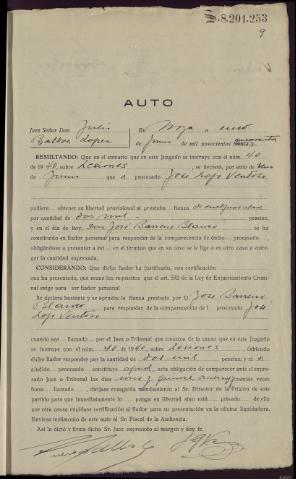 8.201.253
9
AUTO
Juez Señor Don Julio
Balboa Lopez
de mil novecientos cuarenta
RESULTANDO: Que en el sumario que en este Juzgado se instruye con el núm. 40
de 1940, sobre Lesiones, se decretó, por auto de
Junio que el procesado José Lopo Ventoso
pudiera obtener su libertad provisional si presentaba fianza
por cantidad de dos mil pesetas,
y en el día de hoy, Don José Barreiro Blanco se ha
constituído en fiador personal para responder de la comparecencia de dicho procesado,
obligándose a presentar a en el término que en su caso se le fije o en otro caso a entre-
gar la cantidad expresada.
CONSIDERANDO: Que dicho fiador ha justificado, con certificación
que ha presentado, que reune los requisitos que el art. 592 de la Ley de Enjuiciamiento Crimi-
nal exige para ser fiador personal
Se declara bastante y se aprueba la fianza prestada por D. José Barreiro
Blanco para responder de la comparecencia del procesado José
Lopo Ventoso
cuando sea llamado por el Juez o Tribunal que conozca de la causa que en este Juzgado
se instruye con el núm. 40 de 1940 sobre Lesiones, debiendo
dicho fiador responder por la cantidad de dos mil pesetas, y si di-
cho procesado constituye apud acta obligación de comparecer ante el expresado
Juez o Tribunal los días uno y quince y cuantas veces
fuere llamado, diríjase mandamiento al Sr. Director de la Prisión de este
partido para que inmediatamente lo ponga en libertad si no está privado de ella
por otra causa expídase certificación al fiador para su presentación en la oficina liquidadora.
Llévese testimonio de este auto al Sr. Fiscal de la Audiencia.
Así lo dictó y firma dicho Sr. Juez expresado al margen y doy fe.